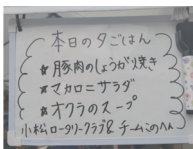 本日の夕ごはん
★豚肉のしょうが焼き
★マカロニサラダ
★オクラのスープ
小松ロータリークラブ& チームこのへん